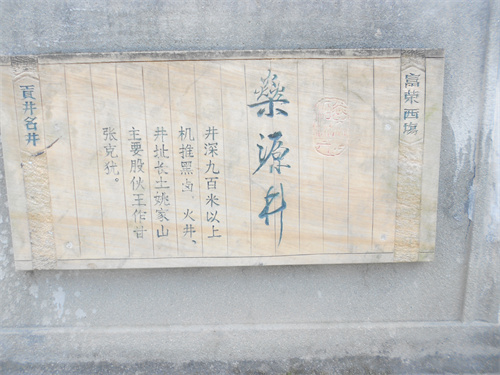 富荣西场
燊源井
井深九百米以上
机推黑卤、火井、
井址长土姚家山
主要股伙王作甘
张克犹。
贡井名井